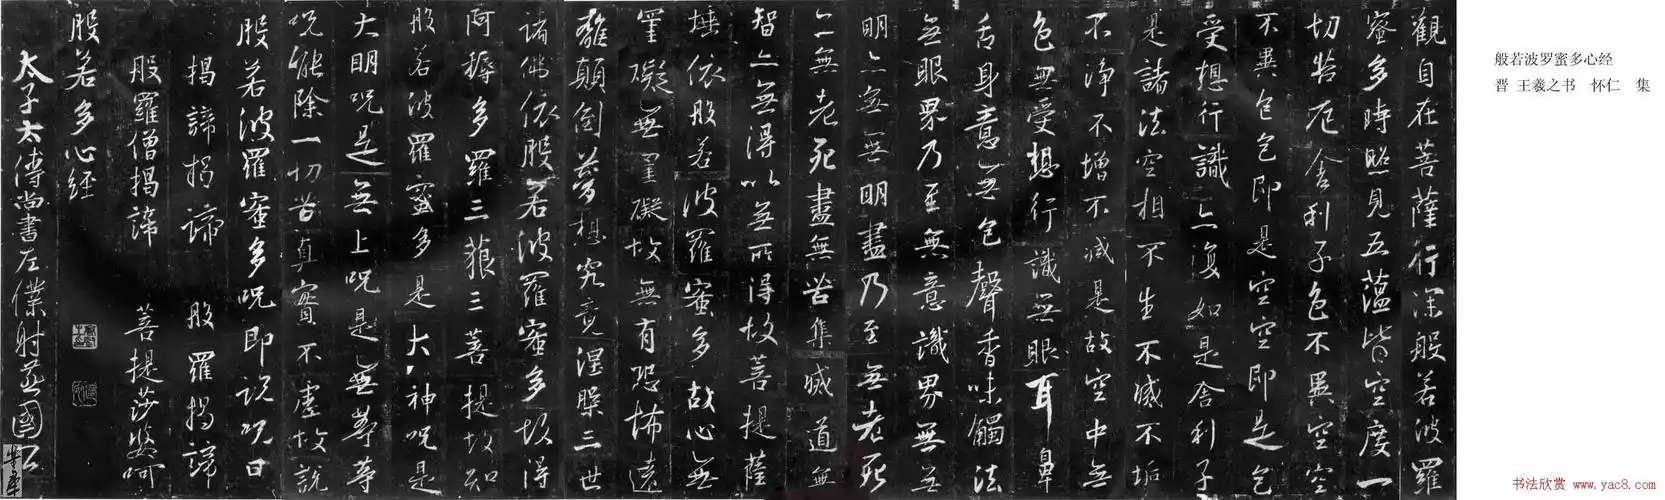 觀自在菩薩行深般若波羅
蜜多時照見五蘊皆空度一
切苦厄舍利子色不異空空
不異色色即是空空即是色
受想行識亦復如是舍利子
是諸法空相不生不滅不垢
不淨不增不減是故空中無
色無受想行識無眼耳鼻
舌身意無色聲香味觸法
無眼界乃至無意識界無無
明亦無無明盡乃至無老死
亦無老死盡無苦集滅道無
智亦無得以無所得故菩提薩
埵依般若波羅蜜多故心無
罣礙無罣礙故無有恐怖遠
離顛倒夢想究竟涅槃三世
諸佛依般若波羅蜜多故得
阿耨多羅三藐三菩提故知
般若波羅蜜多是大神咒是
大明咒是無上咒是無等等
咒能除一切苦真實不虛故說
般若波羅蜜多咒即說咒曰
揭諦揭諦 般羅揭諦
般羅僧揭諦 菩提莎婆呵
般若多心經
太子太傅尚書左僕射燕國公
般若波罗蜜多心经
晋 王羲之书 怀仁 集
书法欣赏 www.yac8.com